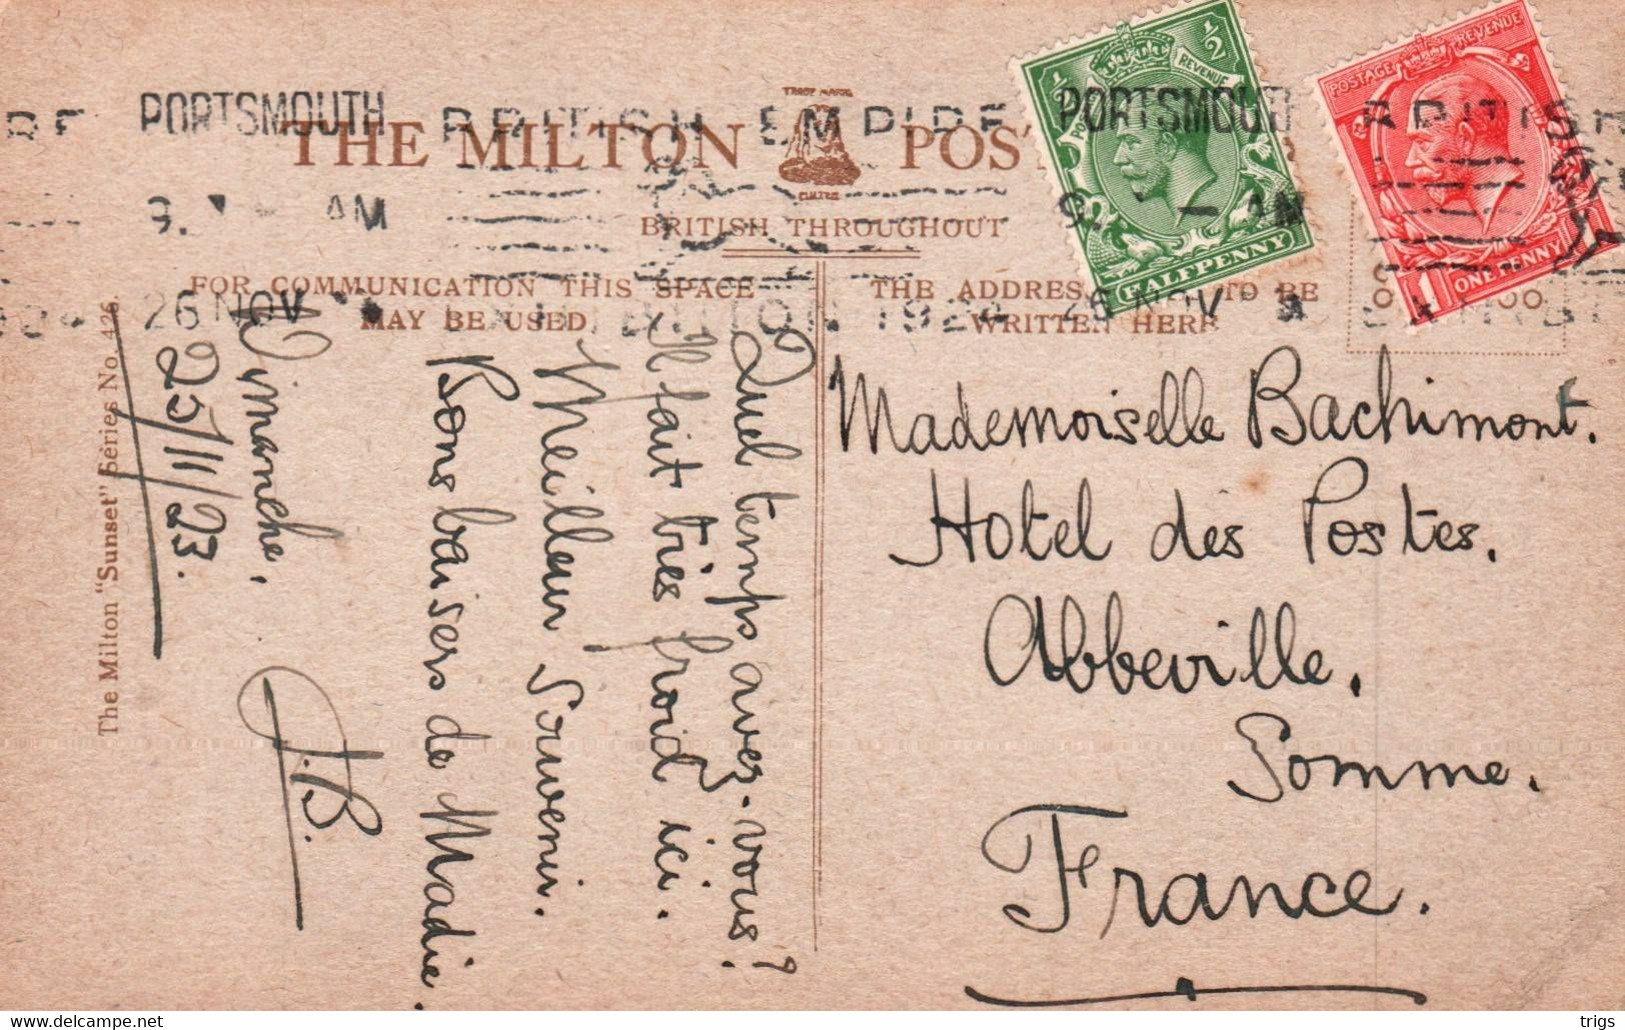 PORTSMOUTH BRITISH EMPIRE PORTSMOUTH BRITISH
THE MILTON POST
TRADE MARK
9. AM
9. AM
26 NOV
26 NOV
EXHIBITION 1924
BRITISH THROUGHOUT
FOR COMMUNICATION THIS SPACE
MAY BE USED
THE ADDRES TO BE
WRITTEN HERE
REVENUE
½
½
HALFPENNY
POSTAGE REVENUE
1
ONE PENNY
The Milton "Sunset" Series No. 426.
Quel temps avez-vous?
Il fait très froid ici.
Meilleur Souvenir.
Bons baisers de Madie.
Dimanche.
25/11/23.
J.B.
Mademoiselle Bachimont.
Hotel des Postes.
Abbeville.
Somme.
France.
trigs